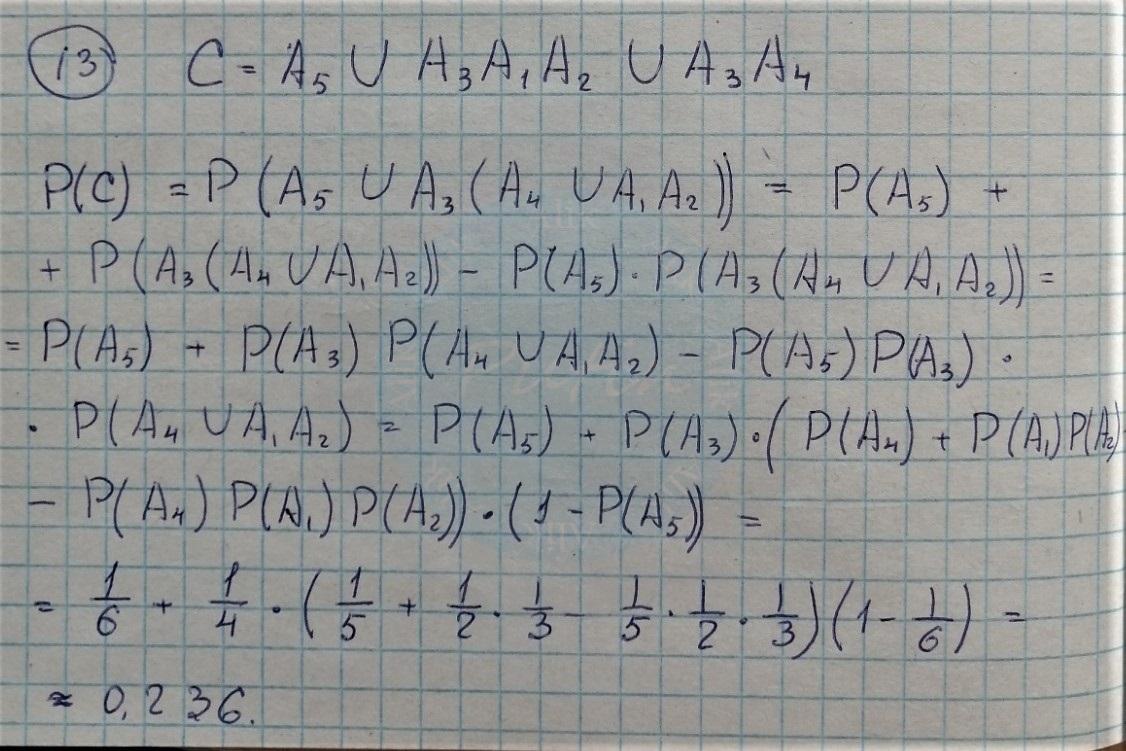 13 C = A₅ ∪ A₃A₁A₂ ∪ A₃A₄
P(C) = P(A₅ ∪ A₃(A₄ ∪ A₁A₂)) = P(A₅) +
+ P(A₃(A₄ ∪ A₁A₂)) - P(A₅)·P(A₃(A₄ ∪ A₁A₂)) =
= P(A₅) + P(A₃) P(A₄ ∪ A₁A₂) - P(A₅)P(A₃) ·
· P(A₄ ∪ A₁A₂) = P(A₅) + P(A₃)·(P(A₄) + P(A₁)P(A₂)
- P(A₄)P(A₁)P(A₂))·(1 - P(A₅)) =
= 1/6 + 1/4 · (1/5 + 1/2 · 1/3 - 1/5 · 1/2 · 1/3)(1 - 1/6) =
≈ 0,236.